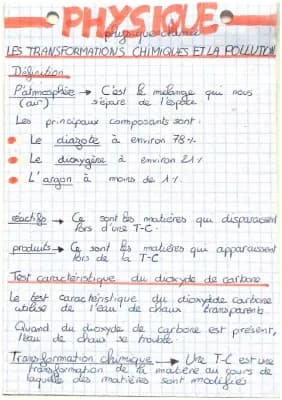 PHYSIQUE
physique chimie
LES TRANSFORMATIONS CHIMIQUES ET LA POLLUTION
Définition
l'atmosphère → C'est le mélange qui nous
(air) sépare de l'espace
Les principaux composants sont :
Le diazote à environ 78%
Le dioxygène à environ 21%
L'argon à moins de 1%
réactifs → Ce sont les matières qui disparaissent
lors d'une T-C.
produits → Ce sont les matières qui apparaissent
lors de la T-C
Test caractéristique du dioxyde de carbone
Le test caractéristique du dioxyde de carbone
utilise de l'eau de chaux transparente.
Quand du dioxyde de carbone est présent,
l'eau de chaux se trouble.
Transformation chimique → Une T-C est une
transformation de la matière au cours de
laquelle des matières sont modifiées